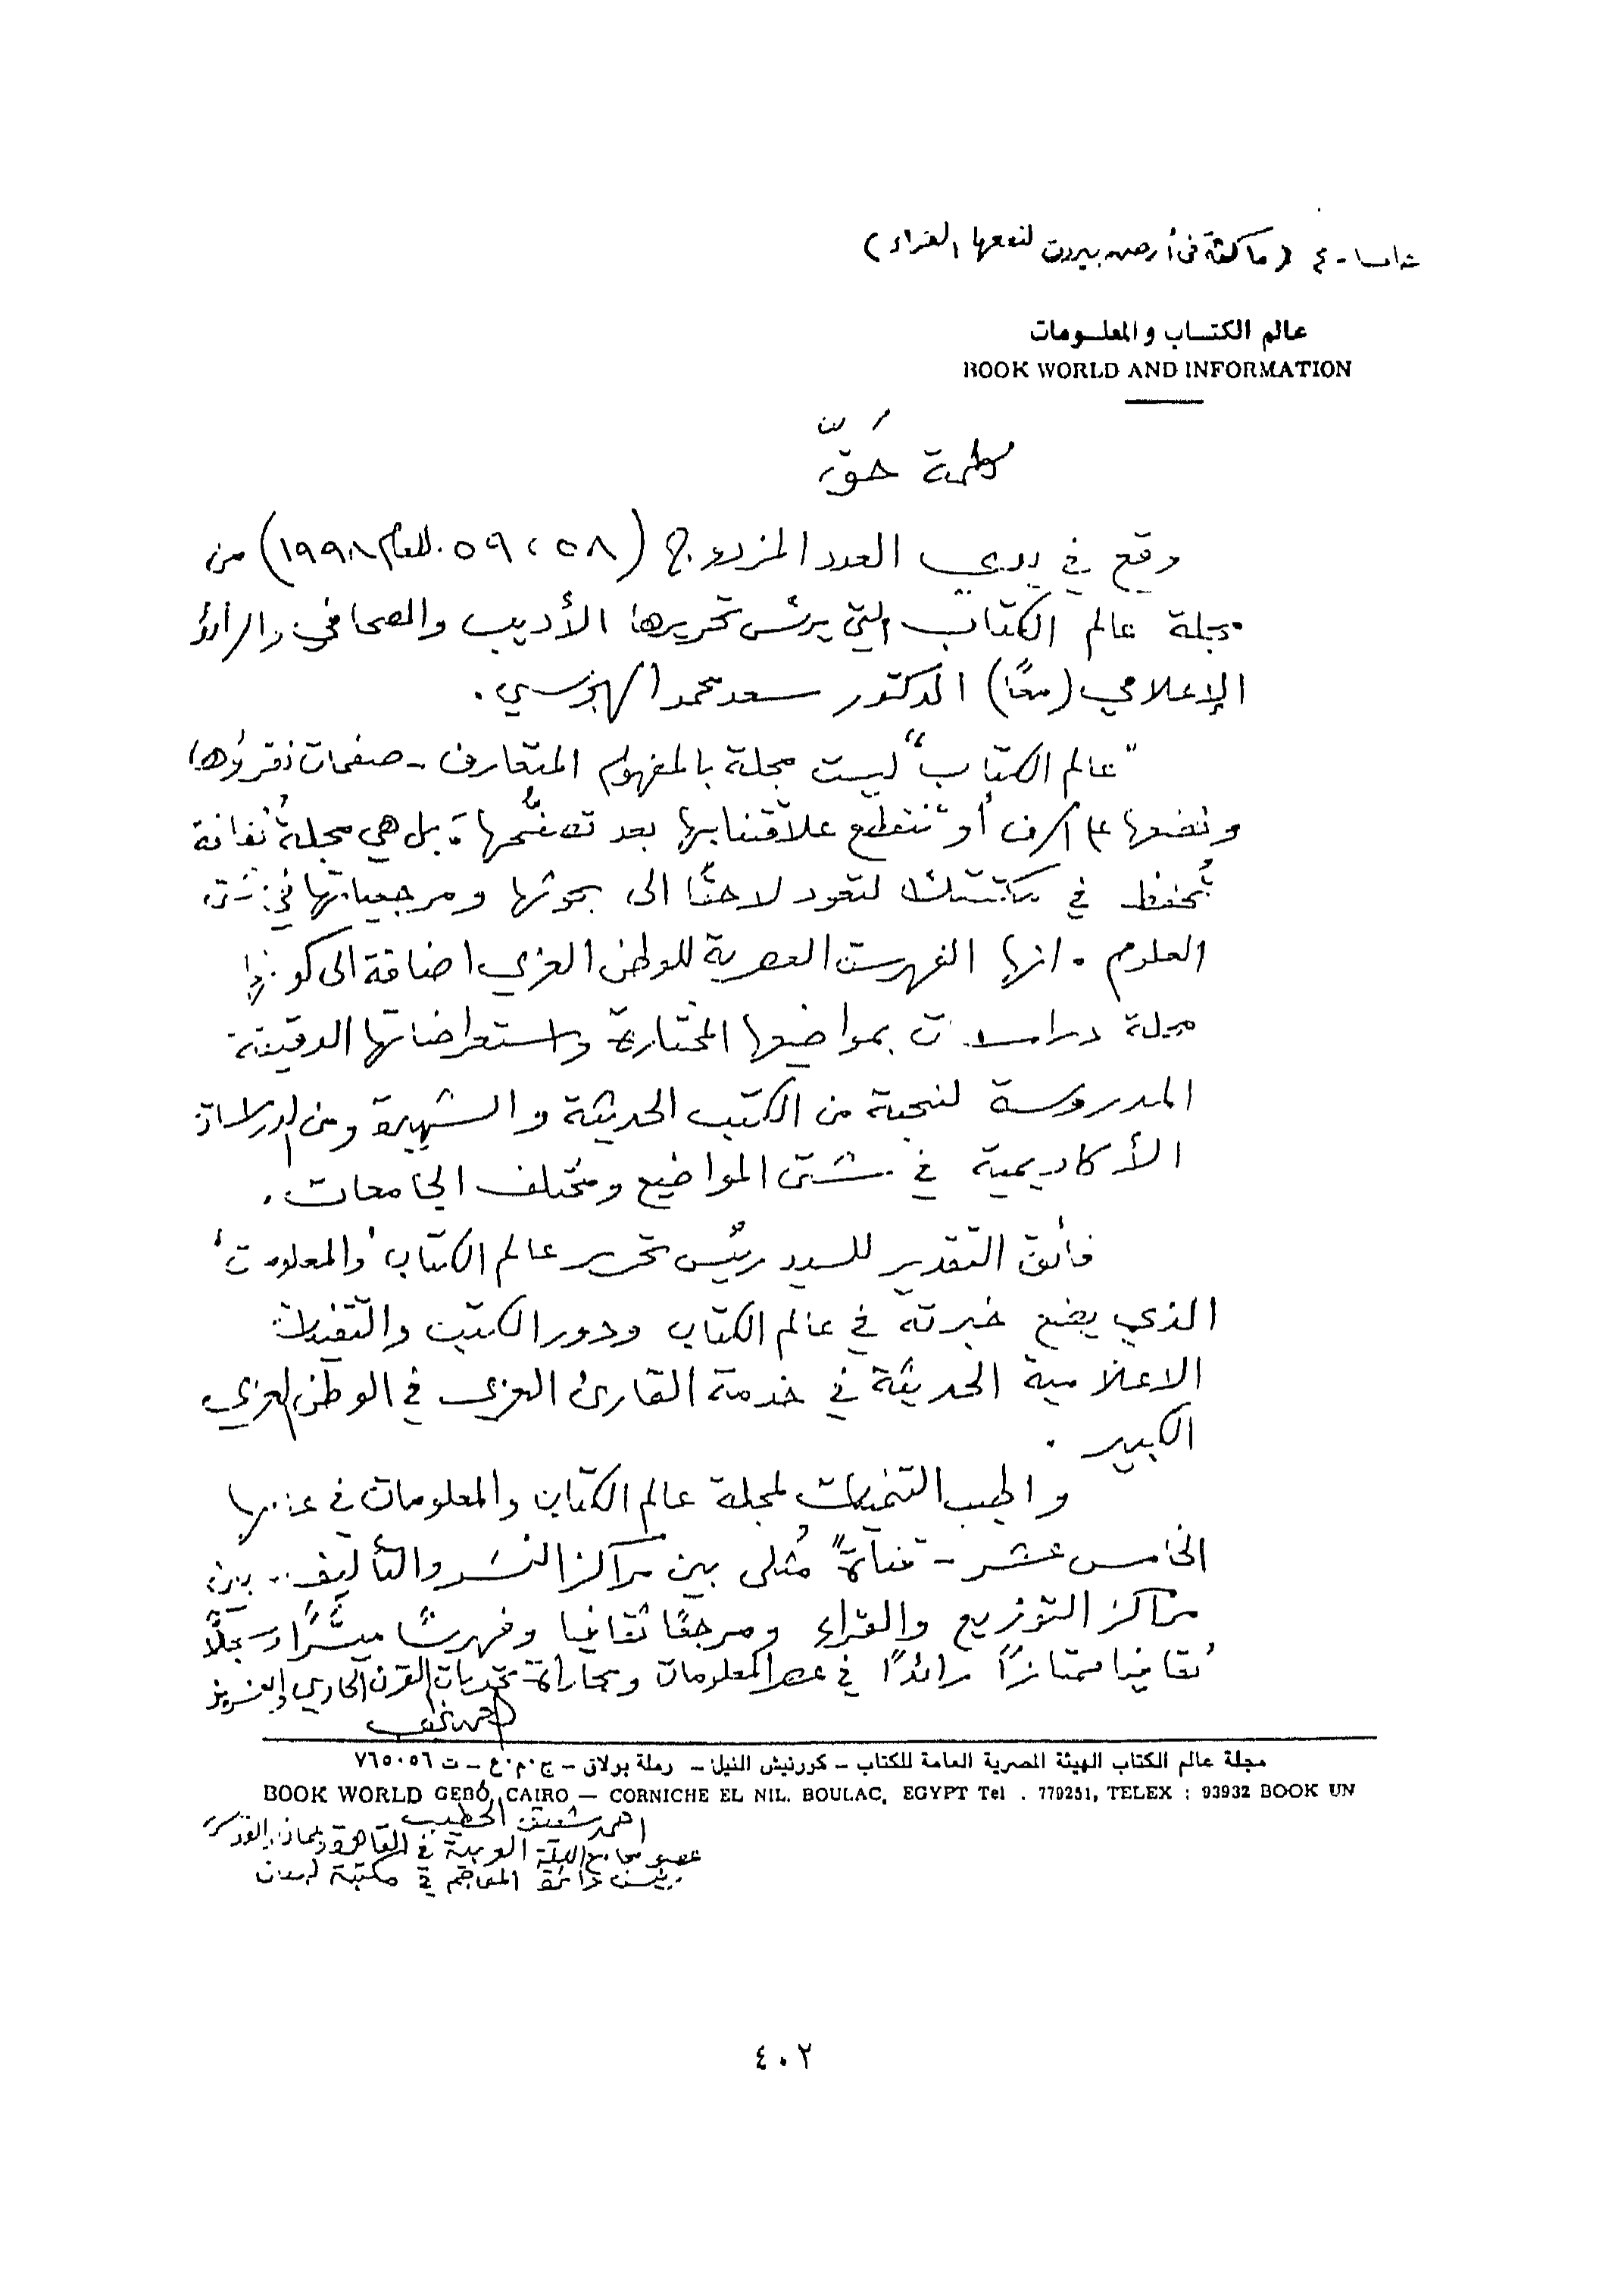 (ماكثة فى أرض بيروت لنفعها القراء)
عالم الكتـاب والمعلـومات
BOOK WORLD AND INFORMATION
كلمة حَقّ
وقع في يدي العدد المزدوج (٥٨، ٥٩ للعام ١٩٩٨) من
مجلة عالم الكتاب التي يرئس تحريرها الأديب والصحافي والرائد
الإعلامي (معًا) الدكتور سعد محمد الهجرسي.
"عالم الكتاب" ليست مجلة بالمفهوم المتعارف - صفحات نقرؤها
ونضعها على الرف أو تنقطع علاقتنا بها بعد تصفُّحها، بل هي مجلة
تُحفظ في مكتبتك لتعود لاحقًا الى بحوثها ومرجعياتها في شتى
العلوم. انها الفهرست العصرية للوطن العربي اضافة الى كونها
مجلة دراسات بمواضيعها المختارة واستعراضاتها الدقيقة
المدروسة لنخبة من الكتب الحديثة والشهيرة ومن الدراسات
الأكاديمية في شتى المواضيع ومختلف الجامعات.
فائق التقدير للسيد رئيس تحرير عالم الكتاب 'والمعلومات'
الذي يضع خبرته في عالم الكتاب ودور الكتب والتقنيات
الاعلامية الحديثة في خدمة القارئ العربي في الوطن العربي
الكبير.
واطيب التمنيات لمجلة عالم الكتاب والمعلومات في عامها
الخامس عشر - قناةً مُثلى بين مراكز النشر والتأليف.. بين
مراكز التوزيع والقراء ومرجعًا ثقافيا وفهرسًا ميسَّرًا وسجلًّا
ثقافيا ممتازًا رائدًا في عصر المعلومات ومجاراة تحديات القرن الحادي والعشرين
مجلة عالم الكتاب الهيئة المصرية العامة للكتاب – كورنيش النيل – رملة بولاق – ج.م.ع – ت ٧٦٥٠٥٦
BOOK WORLD GEBO, CAIRO — CORNICHE EL NIL. BOULAC, EGYPT Tel . 779251, TELEX : 93932 BOOK UN
احمد شفيق الخطيب
عضو مجامع اللغة العربية في القاهرة وعمان والقدس
رئيس دائرة المعاجم في مكتبة لبنان
٤٠٢